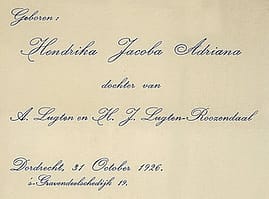 Geboren:
Hendrika Jacoba Adriana
dochter van
A. Lugten en H. J. Lugten-Roozendaal
Dordrecht, 31 October 1926.
's-Gravendeelschedijk 19.